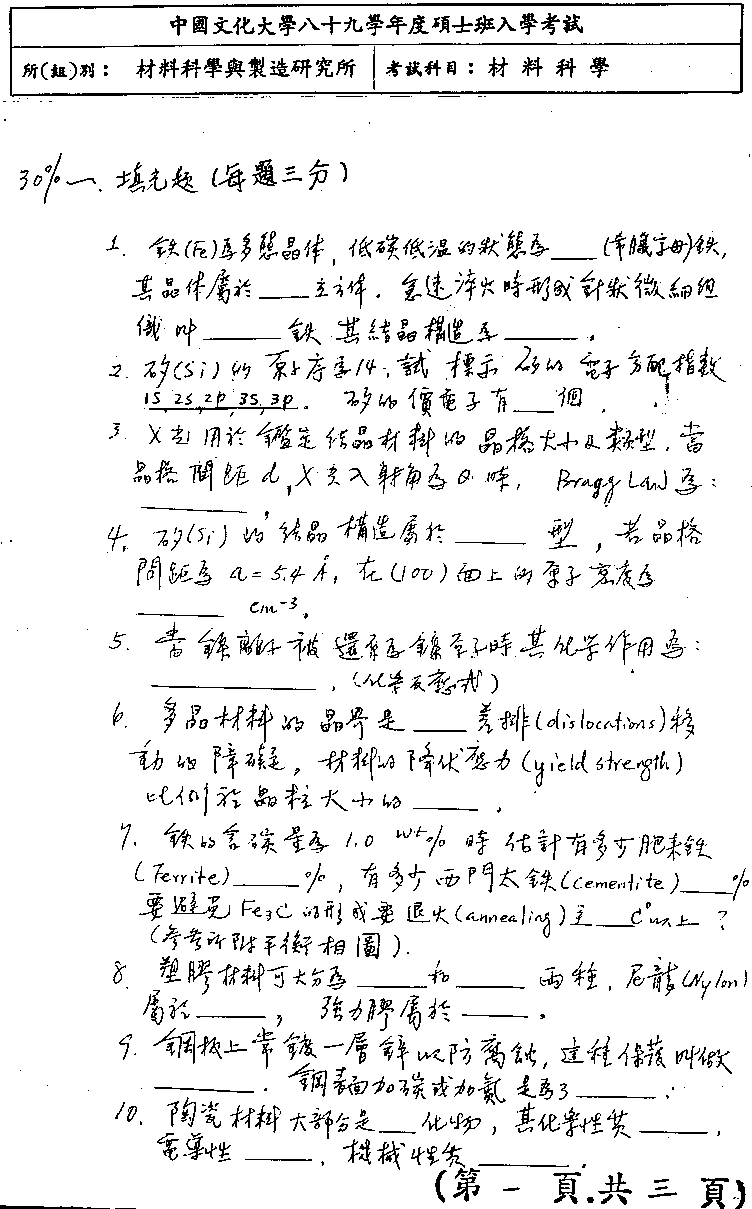 中國文化大學八十九學年度碩士班入學考試
所(組)別： 材料科學與製造研究所 考試科目：材 料 科 學
30% 一、填充題 (每題三分)
1. 鉄(Fe)為多態晶体，低碳低温的狀態為___(希臘字母)鉄，
其晶体屬於____立方体。急速淬火時形成針狀微細組
織叫______鉄 其結晶構造為______。
2. 矽(Si)的原子序為14，試標示矽的電子分配指数
1S, 2S, 2P, 3S, 3P. 矽的價電子有___個.
3. X光用於鑑定結晶材料的晶格大小及類型，當
晶格間距d，X光入射角為θ時，Bragg Law為：
________，
4. 矽(Si)的結晶構造屬於_____型，若晶格
間距為 a = 5.4 Å，在(100)面上的原子密度為
______ cm⁻³。
5. 當鎳離子被還原為鎳原子時其化学作用為：
____________，(化学反應式)
6. 多晶材料的晶界是____差排(dislocations)移
動的障礙，材料的降伏應力(yield strength)
比例於晶粒大小的_____.
7. 鉄的含碳量為 1.0 wt% 時估計有多少肥来鉄
(Ferrite)_____%，有多少西門太鉄(Cementite)____%
要避免Fe₃C的形成要退火(annealing)至___C°以上？
(參考所附平衡相圖).
8. 塑膠材料可大分為_____和_____兩種，尼龍(Nylon)
屬於_____，強力膠屬於_____.
9. 鋼板上常鍍一層鋅以防腐蝕，這種保護叫做
_______. 鋼表面加碳或加氮是為了______.
10. 陶瓷材料大部分是__化物，其化學性質_____，
電導性_____，機械性質_______.
(第 一 頁.共 三 頁)